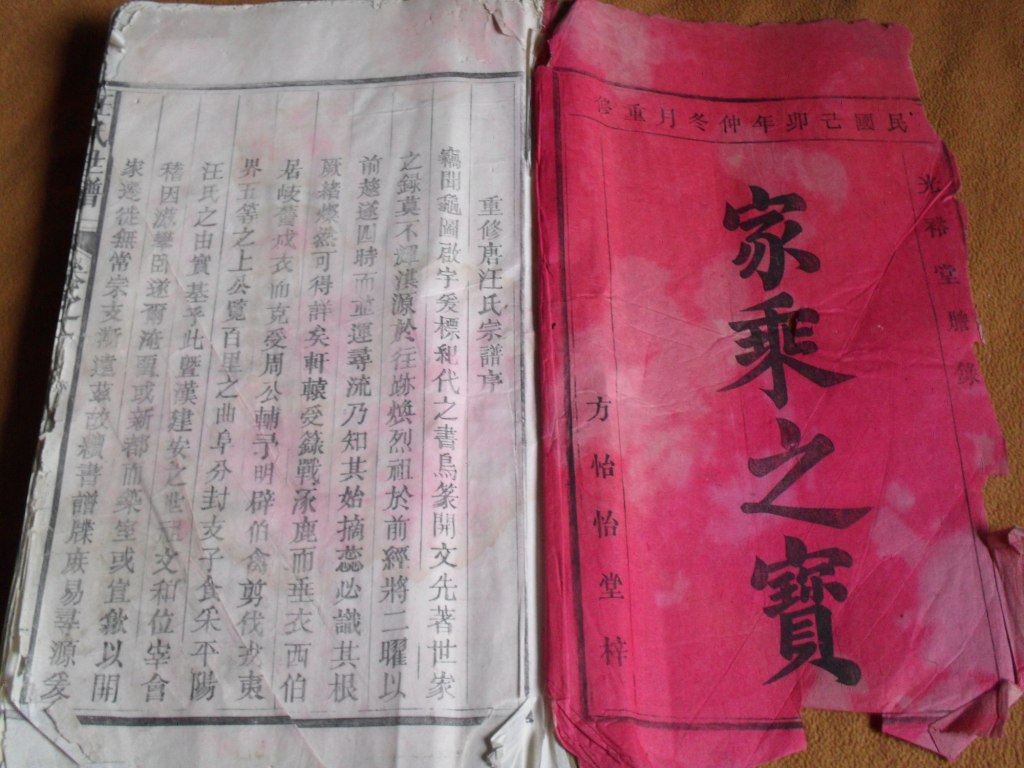 民國己卯年仲冬月重修
光裕堂謄錄
家乘之寶
方怡怡堂梓
重修唐汪氏宗譜序
竊聞龜圖啟宇爰標紀代之書鳥篆開文先著世家
之錄莫不濬淇源於往跡煥烈祖於前經將二曜以
前趨遂四時而並運尋流乃知其始摘蕊必識其根
厥緒燦然可得詳矣軒轅受籙戰涿鹿而垂衣西伯
居岐書戎衣而克受周公輔予明辟伯禽剪伐戎夷
界五等之上公覽百里之曲阜分封支子食采平陽
汪氏之由實基乎此暨漢建安之世冠文和位宰會
稽因流舉邑遂爾淹留或新都而築室或宜歙以開
家遷徙無常宗支漸遠茲故續書譜牒庶易尋源爰
汪氏世譜